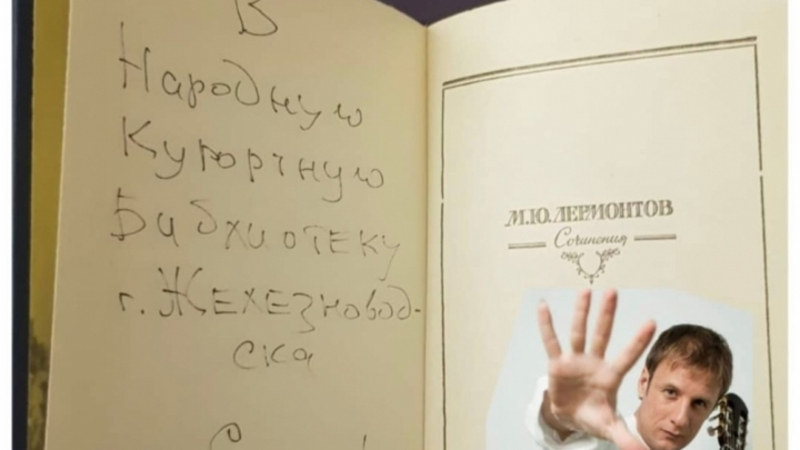 В
Народную
Курортную
Библиотеку
г. Железновод-
ска
М.Ю. ЛЕРМОНТОВ
Сочинения